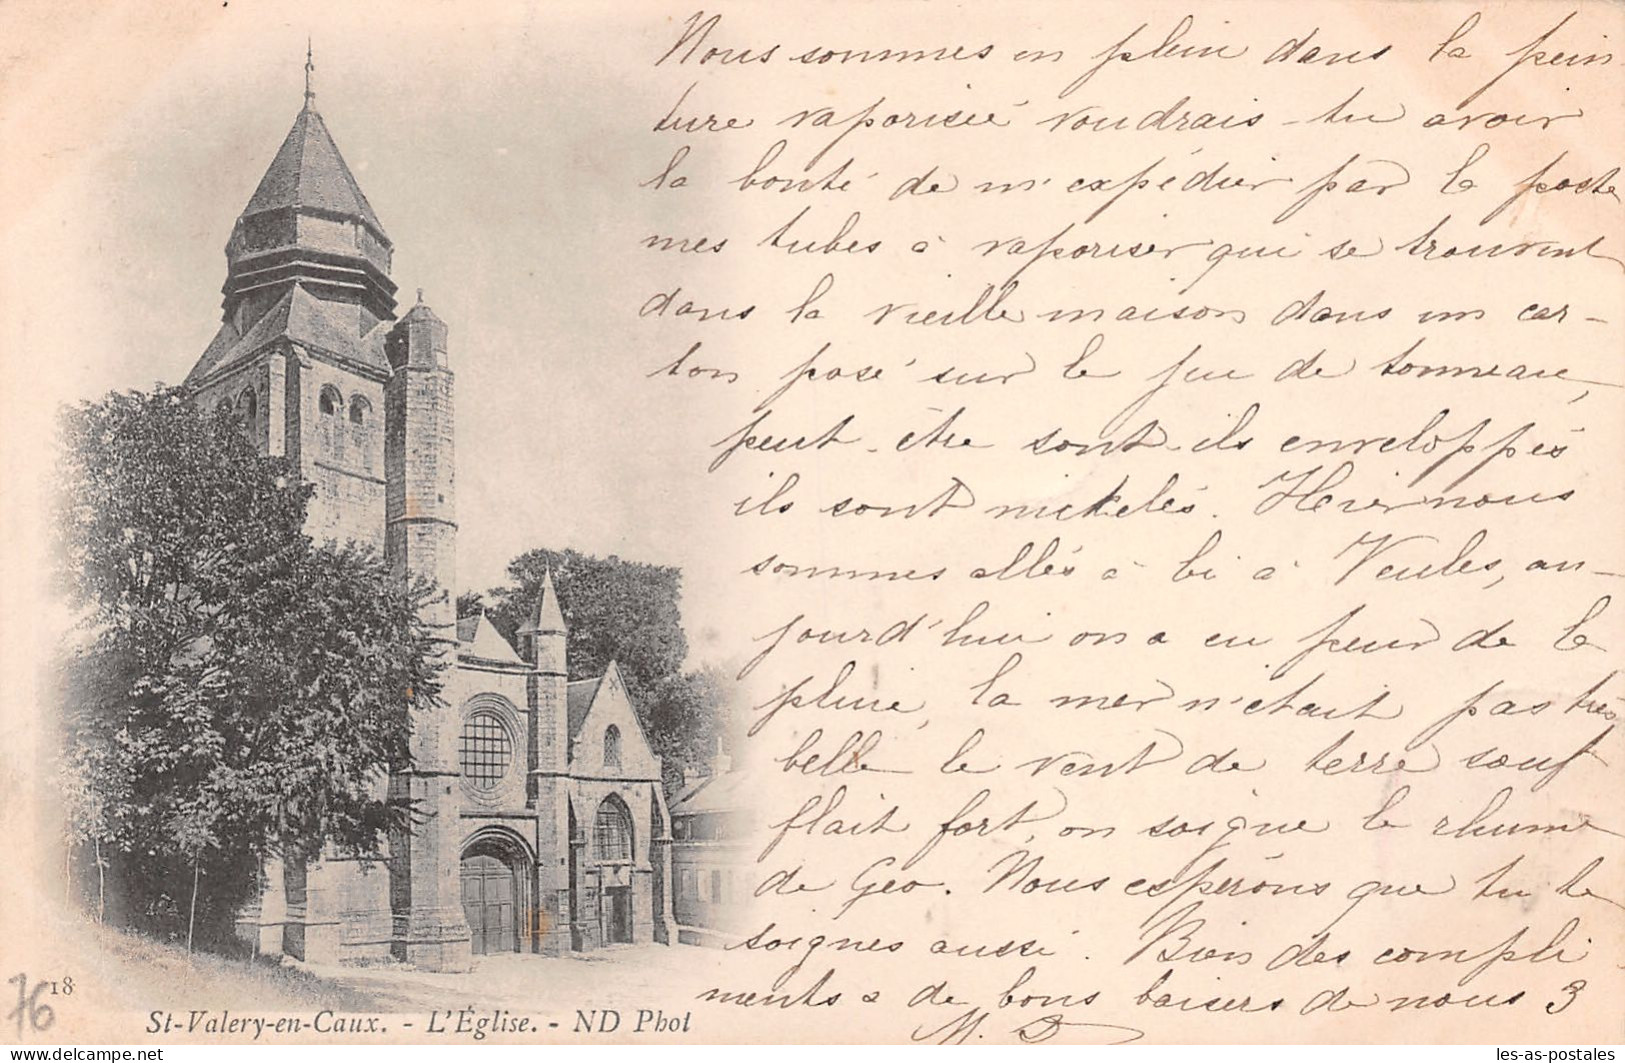 Nous sommes en plein dans la pein
ture vaporisée voudrais-tu avoir
la bonté de m'expédier par la poste
mes tubes à vaporiser qui se trouvent
dans la vieille maison dans un car-
ton posé sur le jeu de tonneau,
peut-être sont-ils enveloppés
ils sont nickelés. Hier nous
sommes allés à bi à Veules, au-
jourd'hui on a eu peur de la
pluie, la mer n'était pas très
belle le vent de terre souf
flait fort, on soigne le rhume
de Geo. Nous espérons que tu te
soignes aussi. Bien des compli
ments & de bons baisers de nous 3
M. D
76
18
St-Valery-en-Caux. - L'Église. - ND Phot
les-as-postales